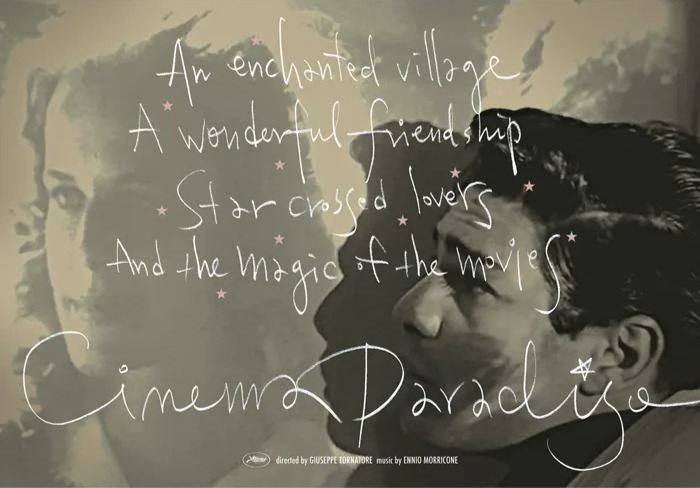 An enchanted village
A wonderful friendship
Star crossed lovers
And the magic of the movies
Cinema Paradiso
directed by GIUSEPPE TORNATORE music by ENNIO MORRICONE